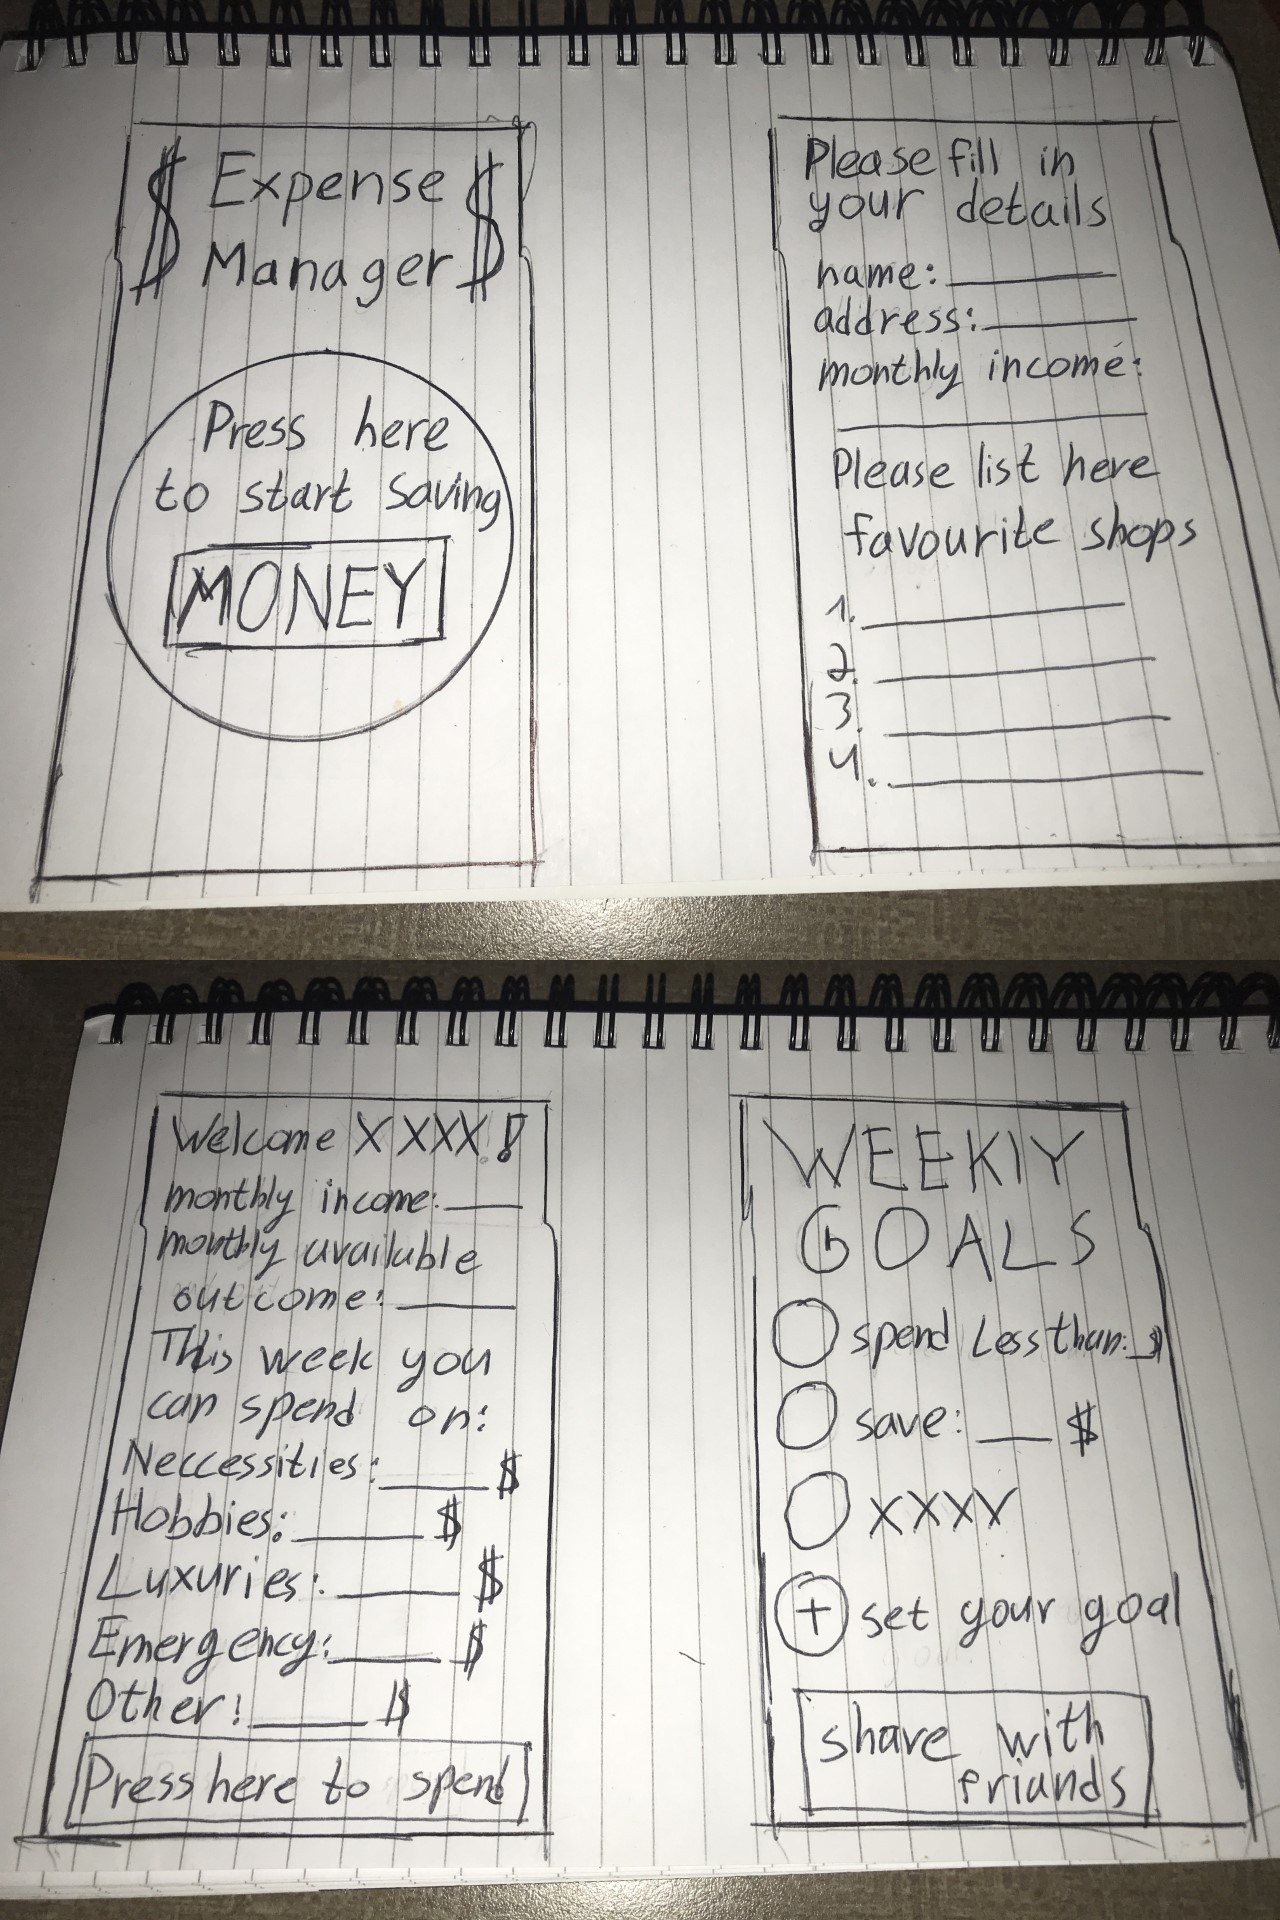 $ Expense $
Manager
Press here
to start saving
MONEY
Please fill in
your details
name:
address:
monthly income:
Please list here
favourite shops
1.
2.
3.
4.
Welcome XXXX!
monthly income:
monthly available
outcome:
This week you
can spend on:
Neccessities: $
Hobbies: $
Luxuries: $
Emergency: $
Other: $
Press here to spend
WEEKLY
GOALS
spend Less than: $
save: $
XXXX
+ set your goal
share with
friands